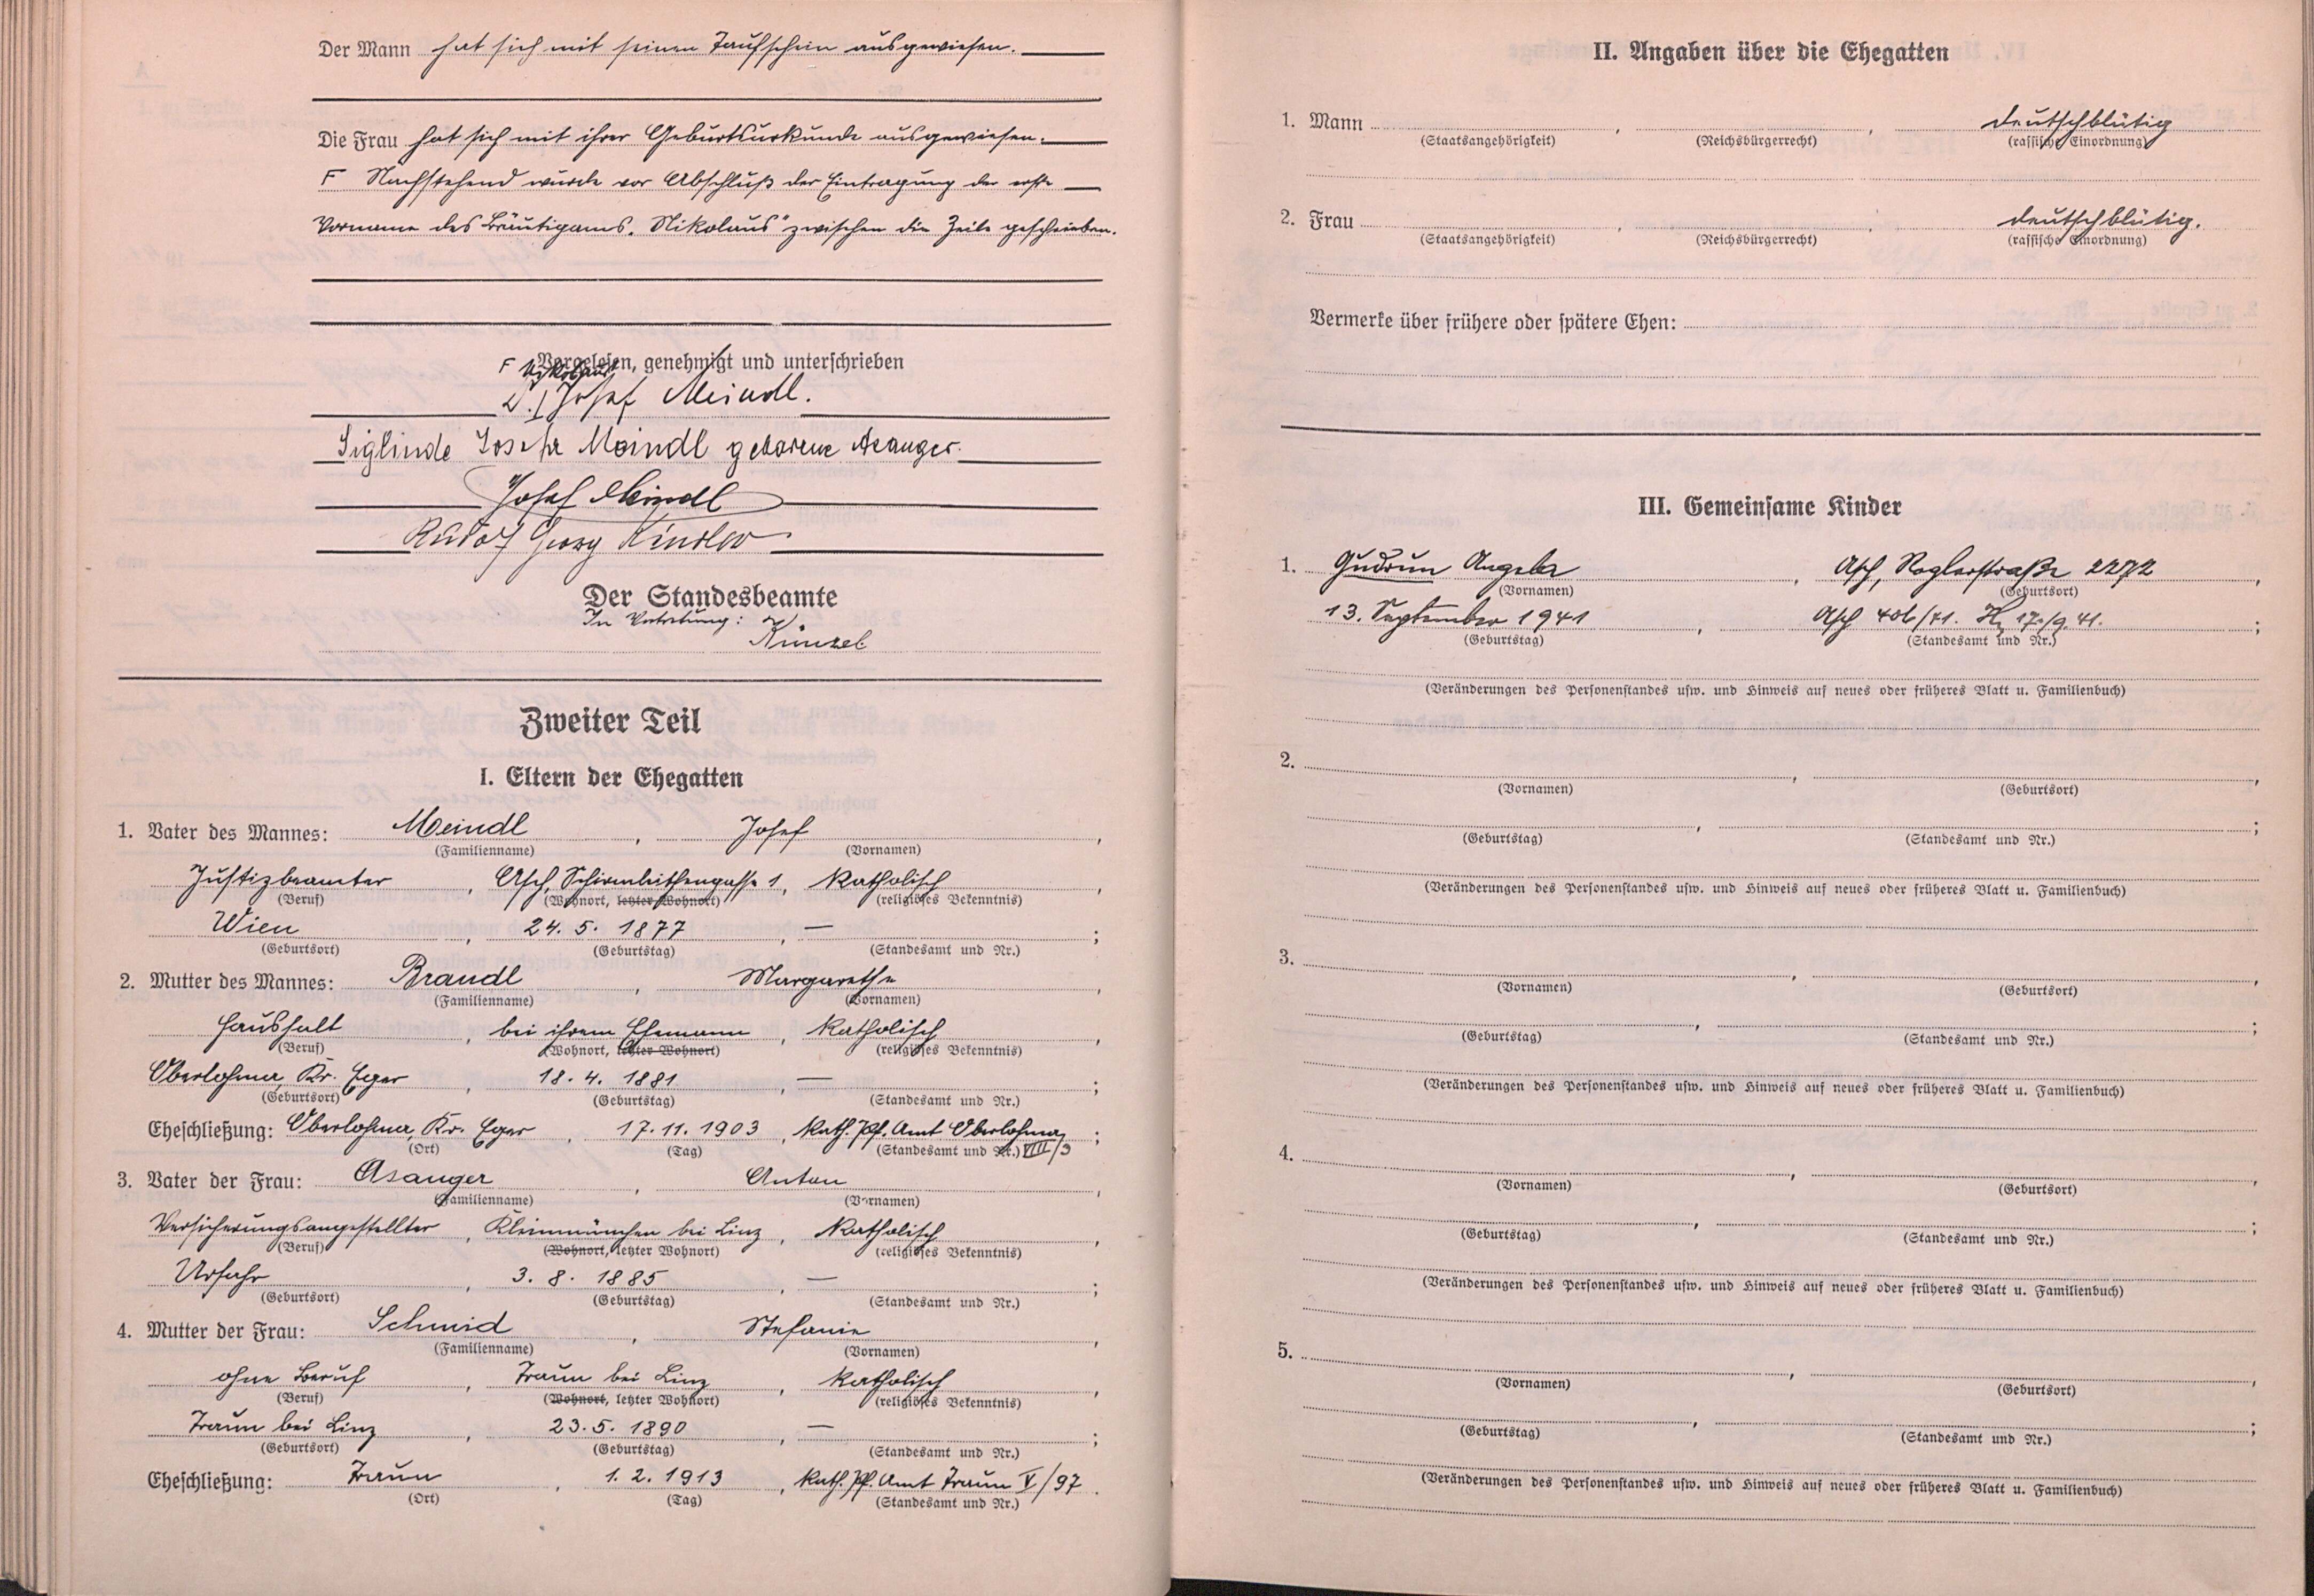 Der Mann hat sich mit seinem Taufschein ausgewiesen.
Die Frau hat sich mit ihrer Geburtsurkunde ausgewiesen.
F Nachstehend wurde vor Abschluß der Eintragung der erste
Vorname des Bräutigams „Nikolaus" zwischen die Zeile geschrieben.
Vorgelesen, genehmigt und unterschrieben
F Nikolaus
Josef Meindl.
Siglinde Josefa Meindl geborene Asanger.
Josef Meindl
Rudolf Georg Künzel
Der Standesbeamte
In Vertretung:
Künzel
Zweiter Teil
I. Eltern der Ehegatten
1. Vater des Mannes: Meindl, Josef,
(Familienname) (Vornamen)
Justizbeamter, Asch, 1, katholisch,
(Beruf) (Wohnort, letzter Wohnort) (religiöses Bekenntnis)
Wien, 24. 5. 1877, —;
(Geburtsort) (Geburtstag) (Standesamt und Nr.)
2. Mutter des Mannes: Brandl, Margarethe,
(Familienname) (Vornamen)
Haushalt, bei ihrem Ehemann, katholisch,
(Beruf) (Wohnort, letzter Wohnort) (religiöses Bekenntnis)
Oberlohma, Kr. Eger, 18. 4. 1881, —;
(Geburtsort) (Geburtstag) (Standesamt und Nr.)
Eheschließung: Oberlohma, Kr. Eger, 17. 11. 1903, kath. Pf. Amt Oberlohma VIII/3;
(Ort) (Tag) (Standesamt und Nr.)
3. Vater der Frau: Asanger, Anton,
(Familienname) (Vornamen)
Versicherungsangestellter, Kleinmünchen bei Linz, katholisch,
(Beruf) (Wohnort, letzter Wohnort) (religiöses Bekenntnis)
Urfahr, 3. 8. 1885, —;
(Geburtsort) (Geburtstag) (Standesamt und Nr.)
4. Mutter der Frau: Schmid, Stefanie,
(Familienname) (Vornamen)
ohne Beruf, Traun bei Linz, katholisch,
(Beruf) (Wohnort, letzter Wohnort) (religiöses Bekenntnis)
Traun bei Linz, 23. 5. 1890, —;
(Geburtsort) (Geburtstag) (Standesamt und Nr.)
Eheschließung: Traun, 1. 2. 1913, kath. Pf. Amt Traun V/97.
(Ort) (Tag) (Standesamt und Nr.)
II. Angaben über die Ehegatten
1. Mann , , deutschblütig
(Staatsangehörigkeit) (Reichsbürgerrecht) (rassische Einordnung)
2. Frau , , deutschblütig.
(Staatsangehörigkeit) (Reichsbürgerrecht) (rassische Einordnung)
Vermerke über frühere oder spätere Ehen:
III. Gemeinsame Kinder
1. Gudrun Angela, Asch, Roglerstraße 2272,
(Vornamen) (Geburtsort)
13. September 1941, Asch 406/41. 17./9. 41.;
(Geburtstag) (Standesamt und Nr.)
(Veränderungen des Personenstandes usw. und Hinweis auf neues oder früheres Blatt u. Familienbuch)
2. , ,
(Vornamen) (Geburtsort)
, ;
(Geburtstag) (Standesamt und Nr.)
(Veränderungen des Personenstandes usw. und Hinweis auf neues oder früheres Blatt u. Familienbuch)
3. , ,
(Vornamen) (Geburtsort)
, ;
(Geburtstag) (Standesamt und Nr.)
(Veränderungen des Personenstandes usw. und Hinweis auf neues oder früheres Blatt u. Familienbuch)
4. , ,
(Vornamen) (Geburtsort)
, ;
(Geburtstag) (Standesamt und Nr.)
(Veränderungen des Personenstandes usw. und Hinweis auf neues oder früheres Blatt u. Familienbuch)
5. , ,
(Vornamen) (Geburtsort)
, ;
(Geburtstag) (Standesamt und Nr.)
(Veränderungen des Personenstandes usw. und Hinweis auf neues oder früheres Blatt u. Familienbuch)